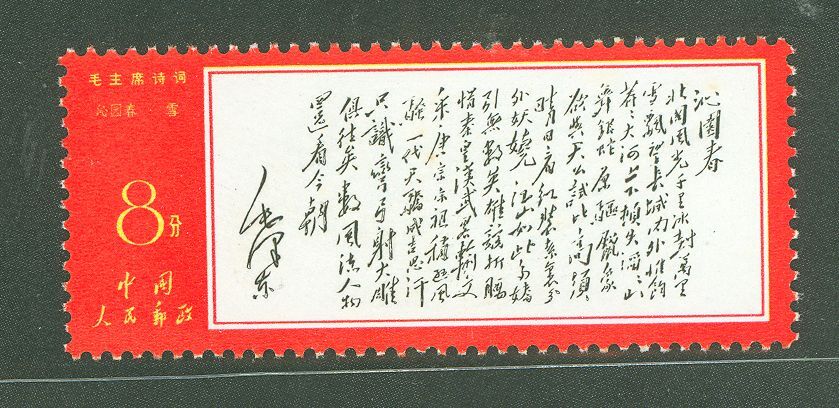 毛主席诗词
沁园春·雪
8分
中国
人民郵政
沁園春
北國風光千里冰封萬里
雪飄望長城内外惟餘
莽々大河上下頓失滔々山
舞銀蛇原驅臘象
欲與天公試比高須
晴日看紅裝素裹分
外妖嬈江山如此多嬌
引無數英雄競折腰
惜秦皇漢武略輸文
采唐宗宋祖稍遜風
騷一代天驕成吉思汗
只識彎弓射大雕
俱往矣數風流人物
還看今朝
毛澤东